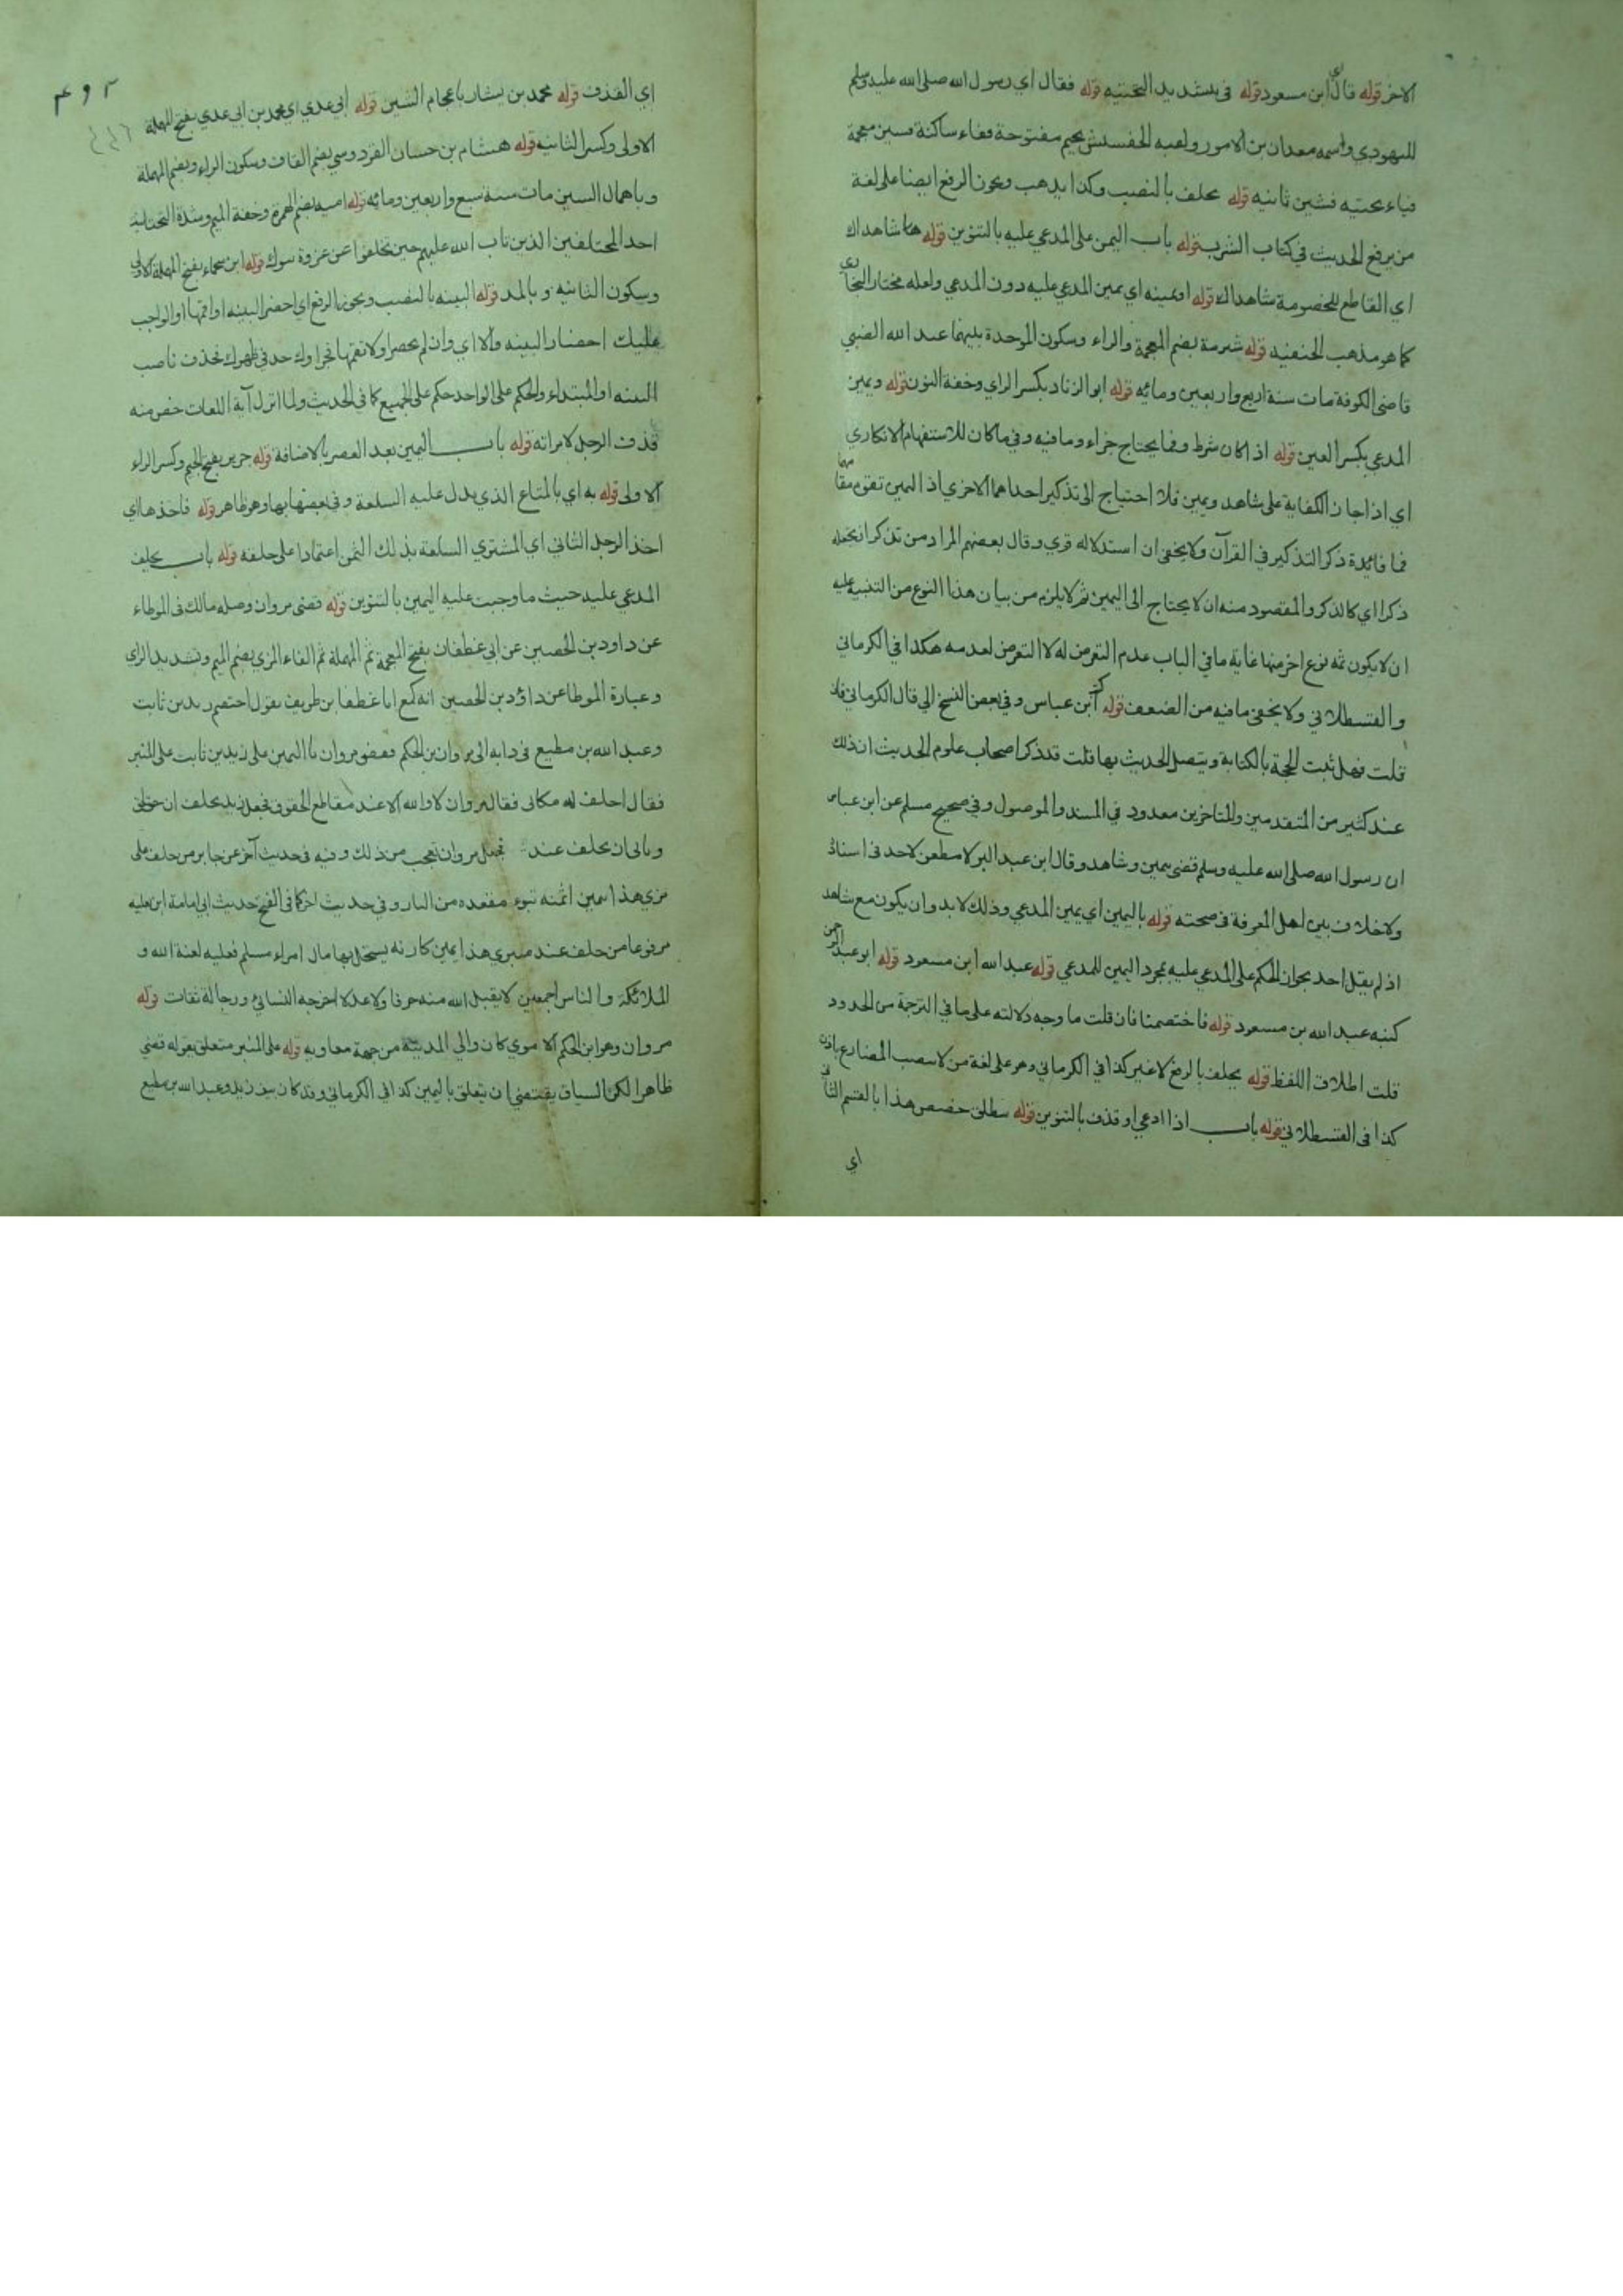 الاخر قوله قال اي ابن مسعود قوله في بتشديد التحتيه قوله فقال اي رسول الله صلى الله عليه وسلم
لليهودي واسمه معدان بن الامور ولقبه الجفشيش بجيم مفتوحة ففاء ساكنة فسين معجمة
فياء تحتيه فشين ثانيه قوله يحلف بالنصب وكذا يذهب ويجوز الرفع ايضا على لغة
من يرفع الحديث في كتاب الشرب قوله باب اليمين على المدعي عليه بالتنوين قوله هنا شاهداك
اي القاطع للخصومة شاهداك قوله او يمينه اي يمين المدعي عليه دون المدعي ولعله مختار البخاري
كما هو مذهب الحنفيه قوله شبرمة بضم المعجمة والراء وسكون الموحدة بينهما عبد الله الضبي
قاضي الكوفة مات سنة اربع واربعين ومائه قوله ابو الزناد بكسر الزاي وخفة النون قوله ويمين
المدعي بكسر العين قوله اذا كان شرط وفما يحتاج جزاء وما فيه وفي ما كان للاستفهام الانكاري
اي اذا جاز الكفاية على شاهد ويمين فلا احتياج الى تذكير احداهما الاخري اذ اليمين تقوم مقامهما
فما فائدة ذكر التذكير في القرآن ولا يخفي ان استدلاله قوي وقال بعضهم المراد من تذكر ان يجعله
ذكرا اي كالذكر والمقصود منه ان لا يحتاج الى اليمين ثم لا يلزم من بيان هذا النوع من التنبيه عليه
ان لا يكون ثمه نوع اخر منها غاية ما في الباب عدم التعرض له لا التعرض لعدمه هكذا في الكرماني
والقسطلاني ولا يخفى ما فيه من الضعف قوله كتب ابن عباس وفي بعض النسخ الي قال الكرماني فان
قلت فهل ثبت الحجة بالكتابة ويتصل الحديث بها قلت قد ذكر اصحاب علوم الحديث ان ذلك
عند كثير من المتقدمين والمتاخرين معدود في المسند والموصول وفي صحيح مسلم عن ابن عباس
ان رسول الله صلى الله عليه وسلم قضى بيمين وشاهد وقال ابن عبد البر لا مطعن لاحد في اسناده
ولا خلاف بين اهل المعرفة في صحته قوله باليمين اي يمين المدعي وذلك لا بد وان يكون مع شاهد
اذ لم يقل احد بجواز الحكم على المدعي عليه بمجرد اليمين للمدعي قوله عبد الله ابن مسعود قوله ابو عبد الرحمن
كنيه عبد الله بن مسعود قوله فاختصمنا فان قلت ما وجه دلالته على ما في الترجمة من الحدود
قلت اطلاق اللفظ قوله يحلف بالرفع لا غير كذا في الكرماني وهو على لغة من لا ينصب المضارع باذن
كذا في القسطلاني قوله باب اذا ادعي او قذف بالتنوين قوله ينطلق خصص هذا بالقسم الثاني
اي
اي القذف قوله محمد بن بشار باعجام الشين قوله ابي عدي اي محمد بن ابي عدي بفتح المهملة
الاولى وكسر الثانيه قوله هشام بن حسان القردوسي بضم القاف وسكون الراء وبضم المهملة
وباهمال السين مات سنة سبع واربعين ومائه قوله اميه بضم الهمزة وخفة الميم وشدة التحتانيه
احد المختلفين الذين تاب الله عليهم حين تخلفوا عن غزوة تبوك قوله ابن سحماء بفتح المهملة الاولى
وسكون الثانيه وبالمد قوله البينه بالنصب ويجوز الرفع اي احضر البينه او اقمها او الواجب
عليك احضار البينه والا اي وان لم تحضر او لا تقمها فجزاوك حد في ظهرك فحذف ناصب
البينه او المبتداء والحكم على الواحد حكم على الجميع كما في الحديث ولما انزل آية اللعان خص منه
قذف الرجل لامراته قوله باب اليمين بعد العصر بالاضافة قوله جرير بفتح الجيم وكسر الراء
الاولى قوله به اي بالمتاع الذي يدل عليه السلعة وفي بعضها بها وهو ظاهر قوله فاخذها اي
اخذ الرجل الثاني اي المشتري السلعة بذلك الثمن اعتمادا على حلفه قوله باب يحلف
المدعي عليه حيث ما وجبت عليه اليمين بالتنوين قوله قضى مروان وصله مالك في الموطاء
عن داود بن الحصين عن ابي غطفان بفتح المعجمة ثم المهملة ثم الفاء المزي بضم الميم وتشديد الزاي
وعبارة الموطا عن داؤد بن الحصين انه سمع ابا غطفان بن طريف يقول اختصم زيد بن ثابت
وعبد الله بن مطيع في دابه الى مروان بن الحكم فقضى مروان باليمين على زيد بن ثابت على المنبر
فقال احلف له مكاني فقال مروان لا والله الا عند مقاطع الحقوق فجعل زيد يحلف ان حقه لحق
ويابى ان يحلف عند فجعل مروان يعجب من ذلك وفيه في حديث آخر عن جابر من حلف على
منبري هذا بيمين اثمة تبوء مقعده من النار وفي حديث اخر كما في الفتح حديث ابي امامة ابن ثعلبه
مرفوعا من حلف عند منبري هذا بيمين كاذبه يستحل بها مال امراء مسلم فعليه لعنة الله و
الملائكة والناس اجمعين لا يقبل الله منه صرفا ولا عدلا اخرجه النسائي ورجاله ثقات قوله
مروان وهو ابن الحكم الاموي كان والي المدينة من جهة معاويه قوله على المنبر متعلق بقوله قضي
ظاهرا لكن السياق يقتضي ان يتعلق باليمين كذا في الكرماني وقد كان بين زيد وعبد الله بن مطيع